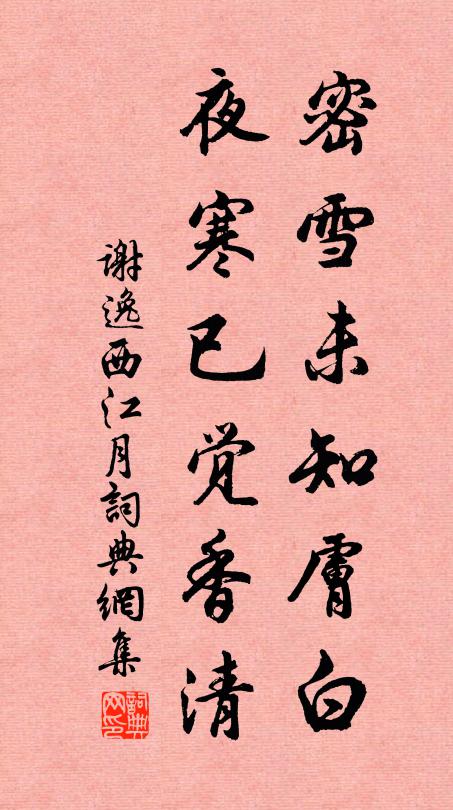 密雪未知膚白
夜寒已觉香清
謝逸西江月詞典網集
詞典网印